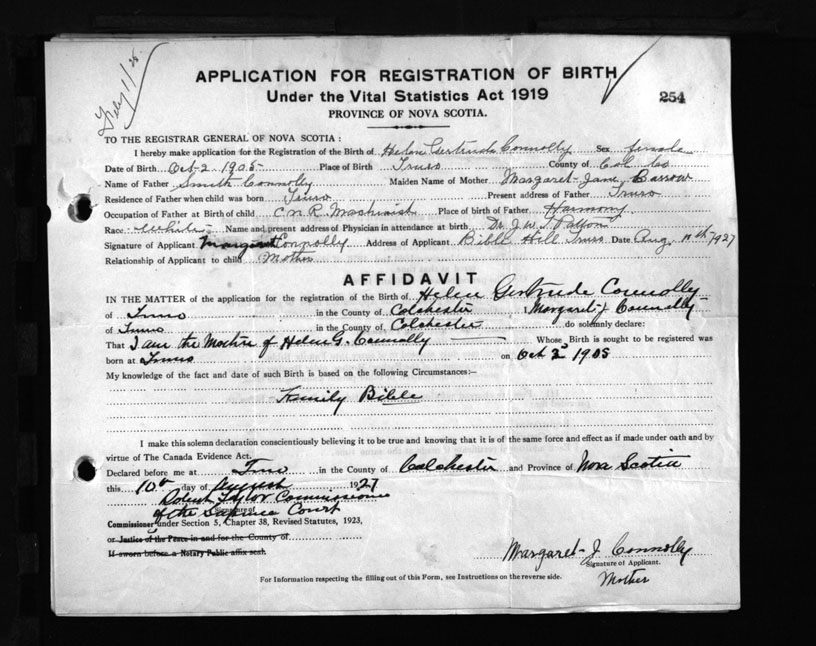 APPLICATION FOR REGISTRATION OF BIRTH
Under the Vital Statistics Act 1919
254
PROVINCE OF NOVA SCOTIA.
TO THE REGISTRAR GENERAL OF NOVA SCOTIA:
I hereby make application for the Registration of the Birth of Helen Gertrude Connolly Sex female
Date of Birth Oct-2 1905 Place of Birth Truro County of Col Co
Name of Father Smith Connolly Maiden Name of Mother Margaret-Jane Barrow
Residence of Father when child was born Truro Present address of Father Truro
Occupation of Father at Birth of child C.N.R. Machinist Place of birth of Father Harmony
Race white Name and present address of Physician in attendance at birth Dr. J.W.T. Patton
Signature of Applicant Margaret Connolly Address of Applicant Bible Hill Truro Date Aug. 10th 1927
Relationship of Applicant to child Mother
AFFIDAVIT
IN THE MATTER of the application for the registration of the Birth of Helen Gertrude Connolly
of Truro in the County of Colchester Margaret-J Connolly
of Truro in the County of Colchester do solemnly declare:
That I am the Mother of Helen G. Connolly Whose Birth is sought to be registered was
born at Truro on Oct 2nd 1905
My knowledge of the fact and date of such Birth is based on the following Circumstances:—
Family Bible
I make this solemn declaration conscientiously believing it to be true and knowing that it is of the same force and effect as if made under oath and by
virtue of The Canada Evidence Act.
Declared before me at Truro in the County of Colchester and Province of Nova Scotia
this 10th day of August 1927
Taylor Commissioner
of the Supreme Court
Signature of
Commissioner under Section 5, Chapter 38, Revised Statutes, 1923,
or Justice of the Peace in and for the County of
If sworn before a Notary Public affix seal.
Margaret-J. Connolly
Signature of Applicant.
Mother
For Information respecting the filling out of this Form, see Instructions on the reverse side.